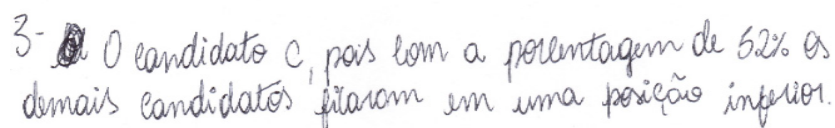 3- O candidato C, pois com a porcentagem de 52% os
demais candidatos ficaram em uma posição inferior.